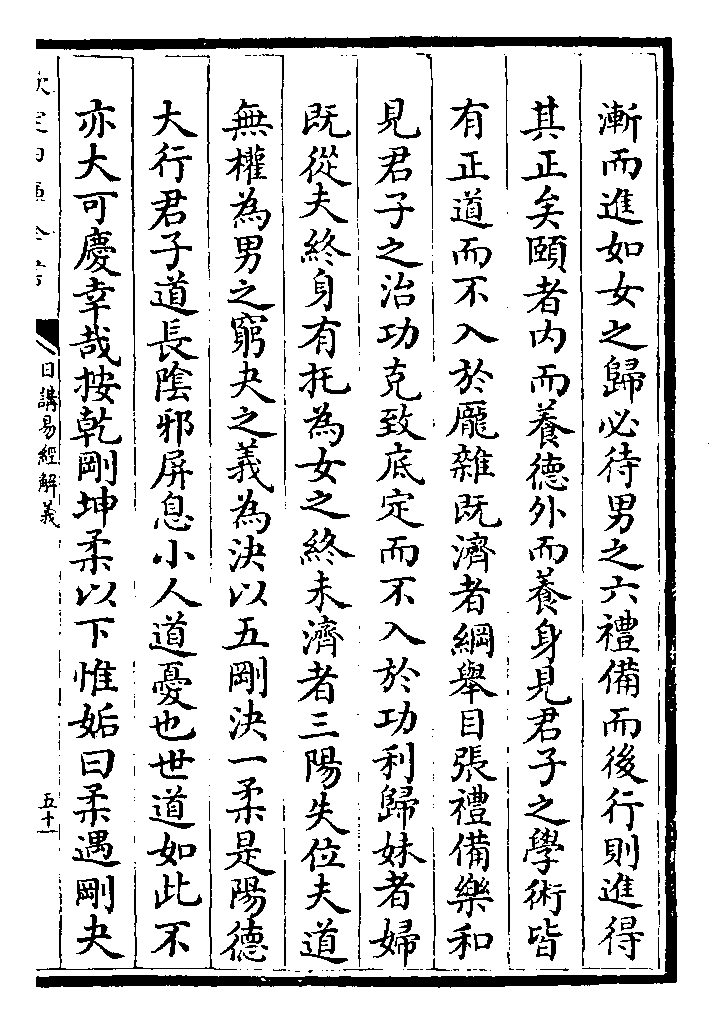 漸而進如女之歸必待男之六禮備而後行則進得
其正矣頤者内而養德外而養身見君子之學術皆
有正道而不入於龎雜既濟者綱舉目張禮備樂和
見君子之治功克致底定而不入於功利歸妹者婦
既從夫終身有托為女之終未濟者三陽失位夫道
無權為男之窮夬之義為決以五剛決一柔是陽德
大行君子道長陰邪屏息小人道憂也世道如此不
亦大可慶幸哉按乾剛坤柔以下惟姤曰柔遇剛夬
欽定四庫全書
日講易經解義
五十一